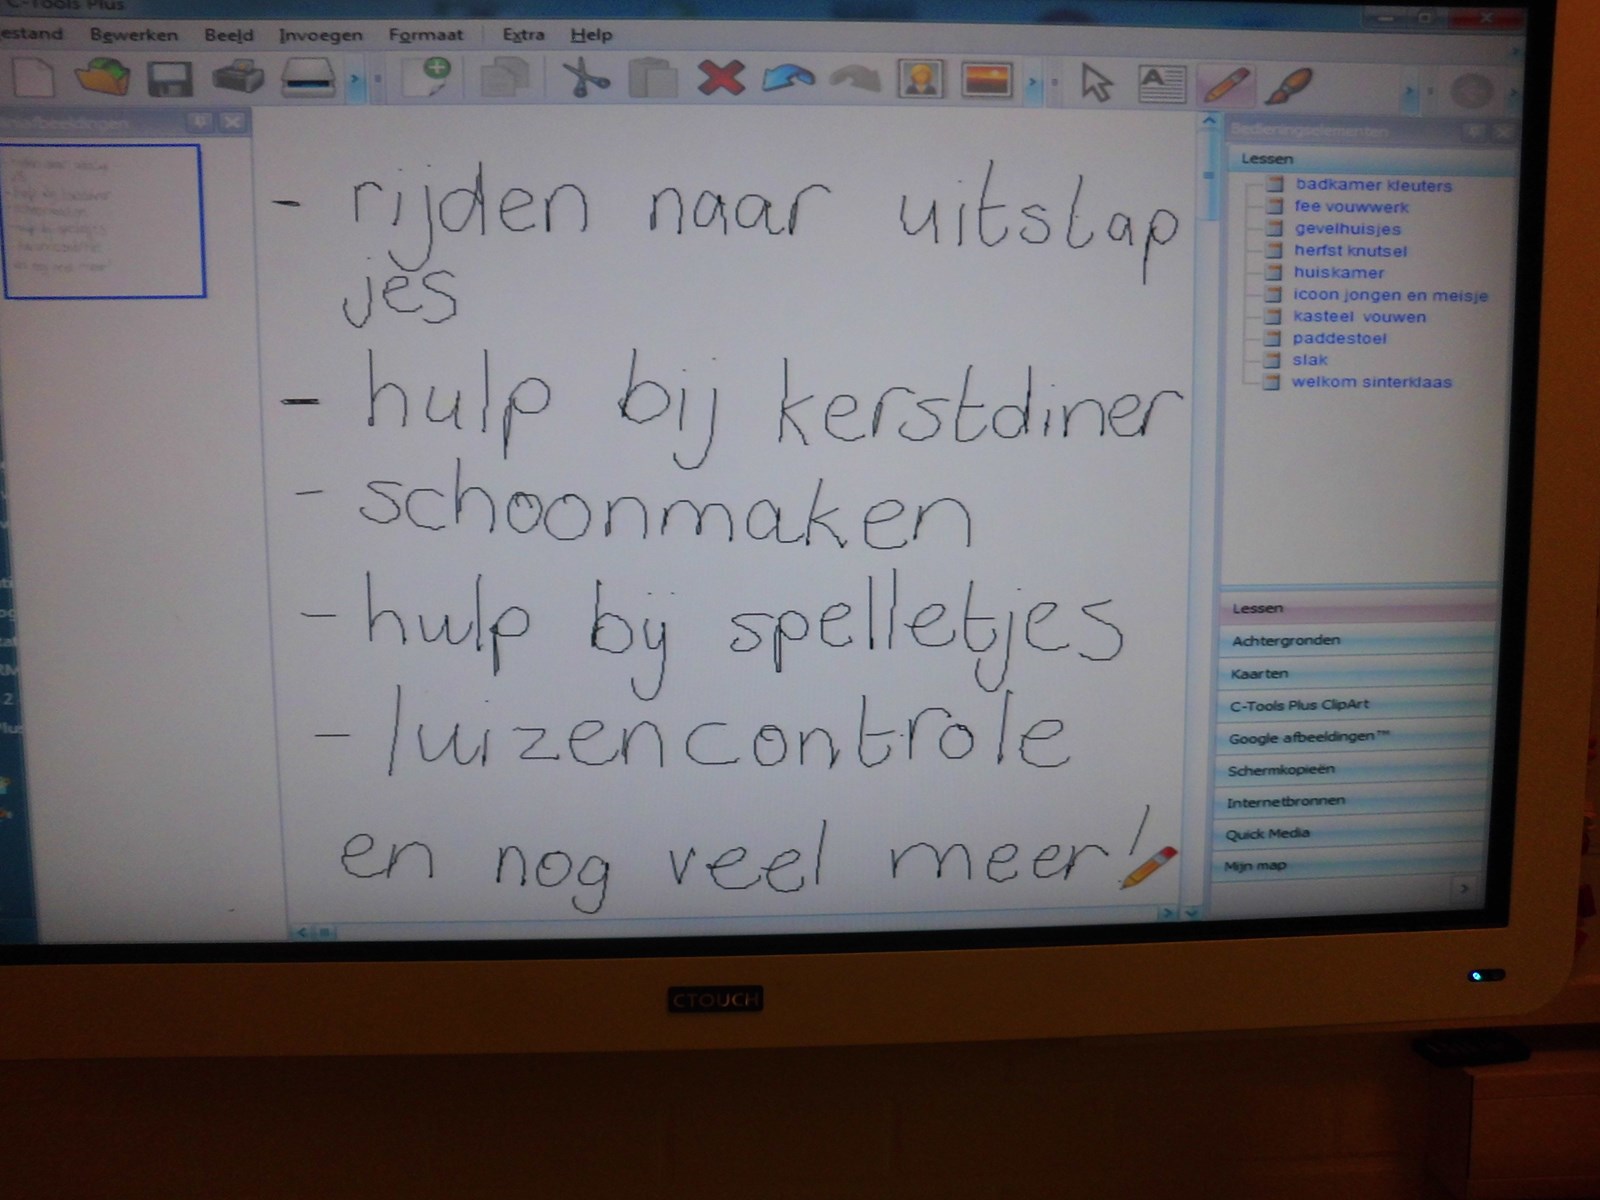 C-Tools Plus
Bewerken Beeld Invoegen Formaat Extra Help
Bedieningselementen
Lessen
badkamer kleuters
fee vouwwerk
gevelhuisjes
herfst knutsel
huiskamer
icoon jongen en meisje
kasteel vouwen
paddestoel
slak
welkom sinterklaas
- rijden naar uitstap
jes
- hulp bij kerstdiner
- schoonmaken
- hulp bij spelletjes
- luizencontrole
en nog veel meer!
Lessen
Achtergronden
Kaarten
C-Tools Plus ClipArt
Google afbeeldingen™
Schermkopieën
Internetbronnen
Quick Media
Mijn map
CTOUCH